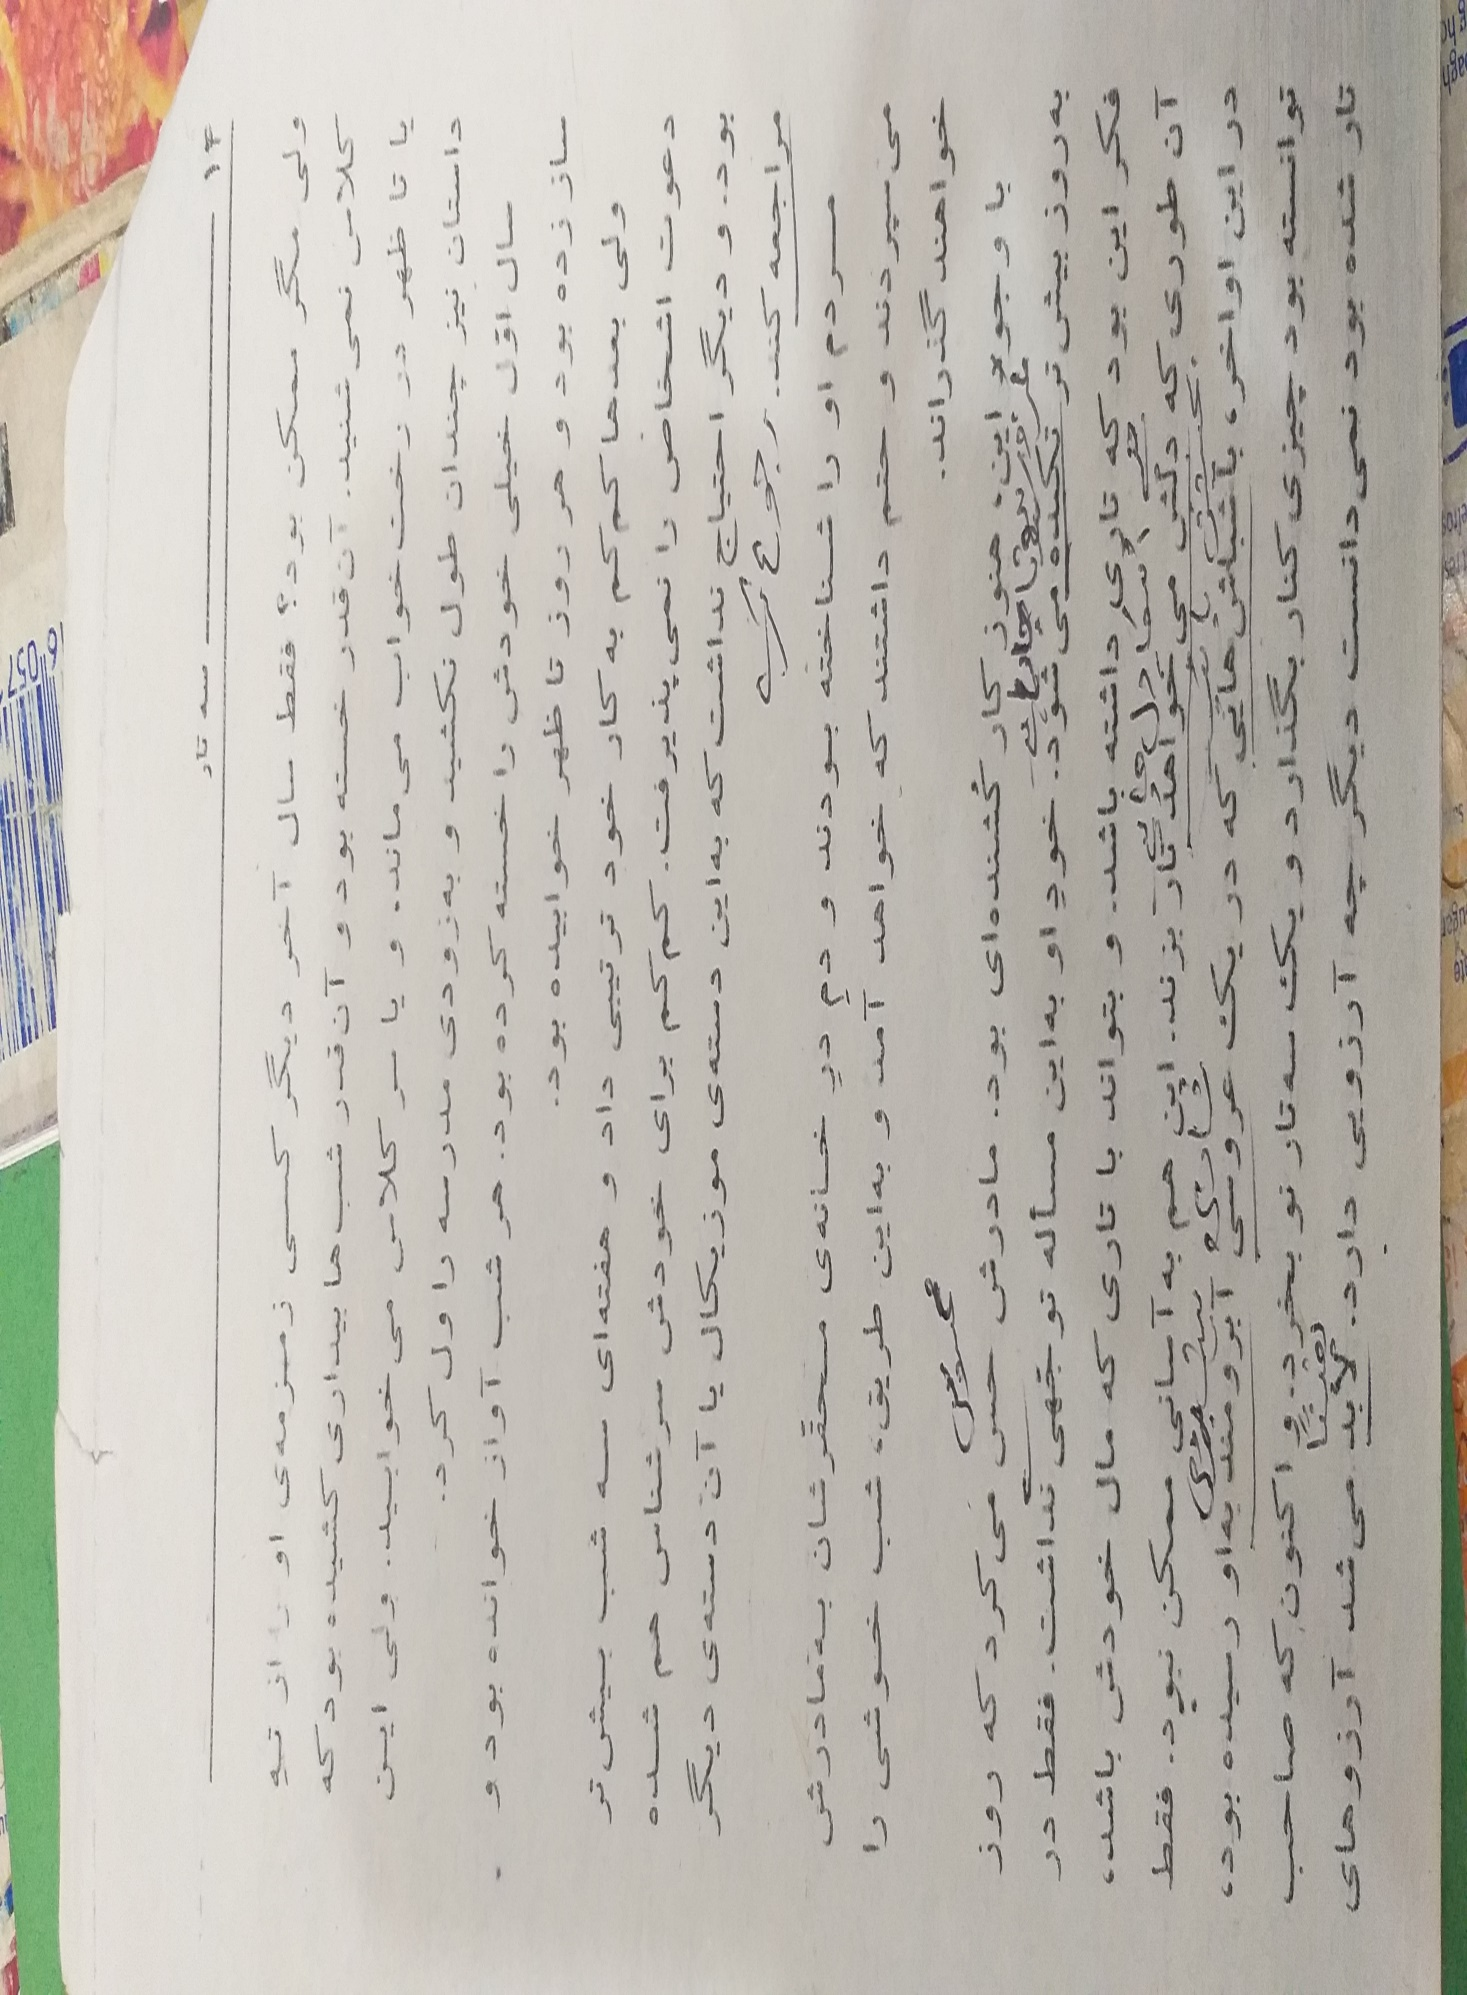 ۱۴ سه تار
ولی مگر ممکن بود؟ فقط سال آخر دیگر کسی زمزمه‌ی او را از ته
کلاس نمی‌شنید. آن‌قدر خسته بود و آن‌قدر شب‌ها بیداری کشیده بود که
یا تا ظهر در رخت‌خواب می‌ماند، و یا سر کلاس می‌خوابید. ولی این
داستان نیز چندان طول نکشید و به‌زودی مدرسه را ول کرد.
سال اوّل خیلی خودش را خسته کرده بود. هر شب آواز خوانده بود و
ساز زده بود و هر روز تا ظهر خوابیده بود.
ولی بعدها کم‌کم به کار خود ترتیبی داد و هفته‌ای سه شب بیش‌تر
دعوت اشخاص را نمی‌پذیرفت. کم‌کم برای خودش سرشناس هم شده
بود. و دیگر احتیاج نداشت که به‌این دسته‌ی موزیکال یا آن دسته‌ی دیگر
مراجعه کند.
رجوع
مردم او را شناخته بودند و دمِ درِ خانه‌ی محقّرشان به‌مادرش
می‌سپردند و حتم داشتند که خواهد آمد و به‌این طریق، شب خوشی را
خواهند گذراند.
با وجود این، هنوز کار کُشنده‌ای بود. مادرش حس می‌کرد که روز
به‌روز بیش‌تر تکیده می‌شود. خودِ او به‌این مسأله توجّهی نداشت. فقط در
فکر این بود که تاری داشته باشد. و بتواند با تاری که مال خودش باشد،
آن طوری که دلش می‌خواهد تار بزند. این هم به‌آسانی ممکن نبود. فقط
در این اواخر، با شباش‌هایی که در یک عروسی آبرومند به‌او رسیده بود،
توانسته بود چیزی کنار بگذارد و یک سه‌تار نو بخرد. و اکنون که صاحب
تقریباً
تار شده بود نمی‌دانست دیگر چه آرزویی دارد. لابد می‌شد آرزوهای